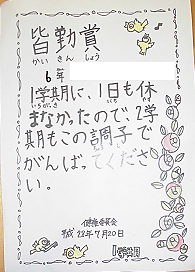 皆勤賞
かい きん しょう
6年
1学期に、1日も休
いちがっき にち
まなかったので、2学
期もこの調子で
がんばってくださ
い。
健康委員会
平成28年7月20日